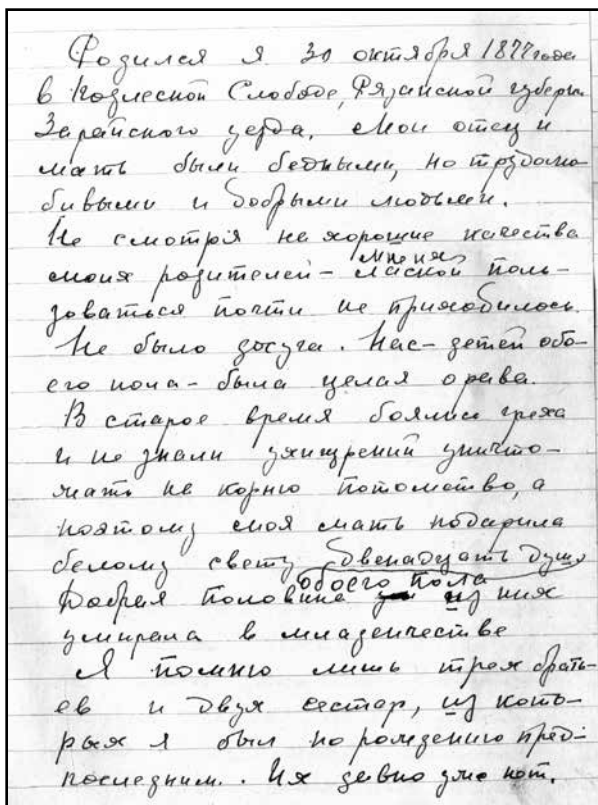 Родился я 30 октября 1877 года
в Подлесной Слободе, Рязанской губерн
Зарайского уезда. Мои отец и
мать были бедными, но трудолю-
бивыми и добрыми людьми.
Не смотря на хорошие качества
моих родителей – мне их лаской поль-
зоваться почти не приходилось.
Не было досуга. Нас – детей обо-
его пола – была целая орава.
В старое время боялись греха
и не знали ухищрений уничто-
жать на корню потомство, а
поэтому моя мать подарила
белому свету двенадцать душ
обоего пола
Добрая половина из них
умирала в младенчестве
Я помню лишь трех брать-
ев и двух сестер, из кото-
рых я был по рождению пред-
последним. Их давно уже нет.